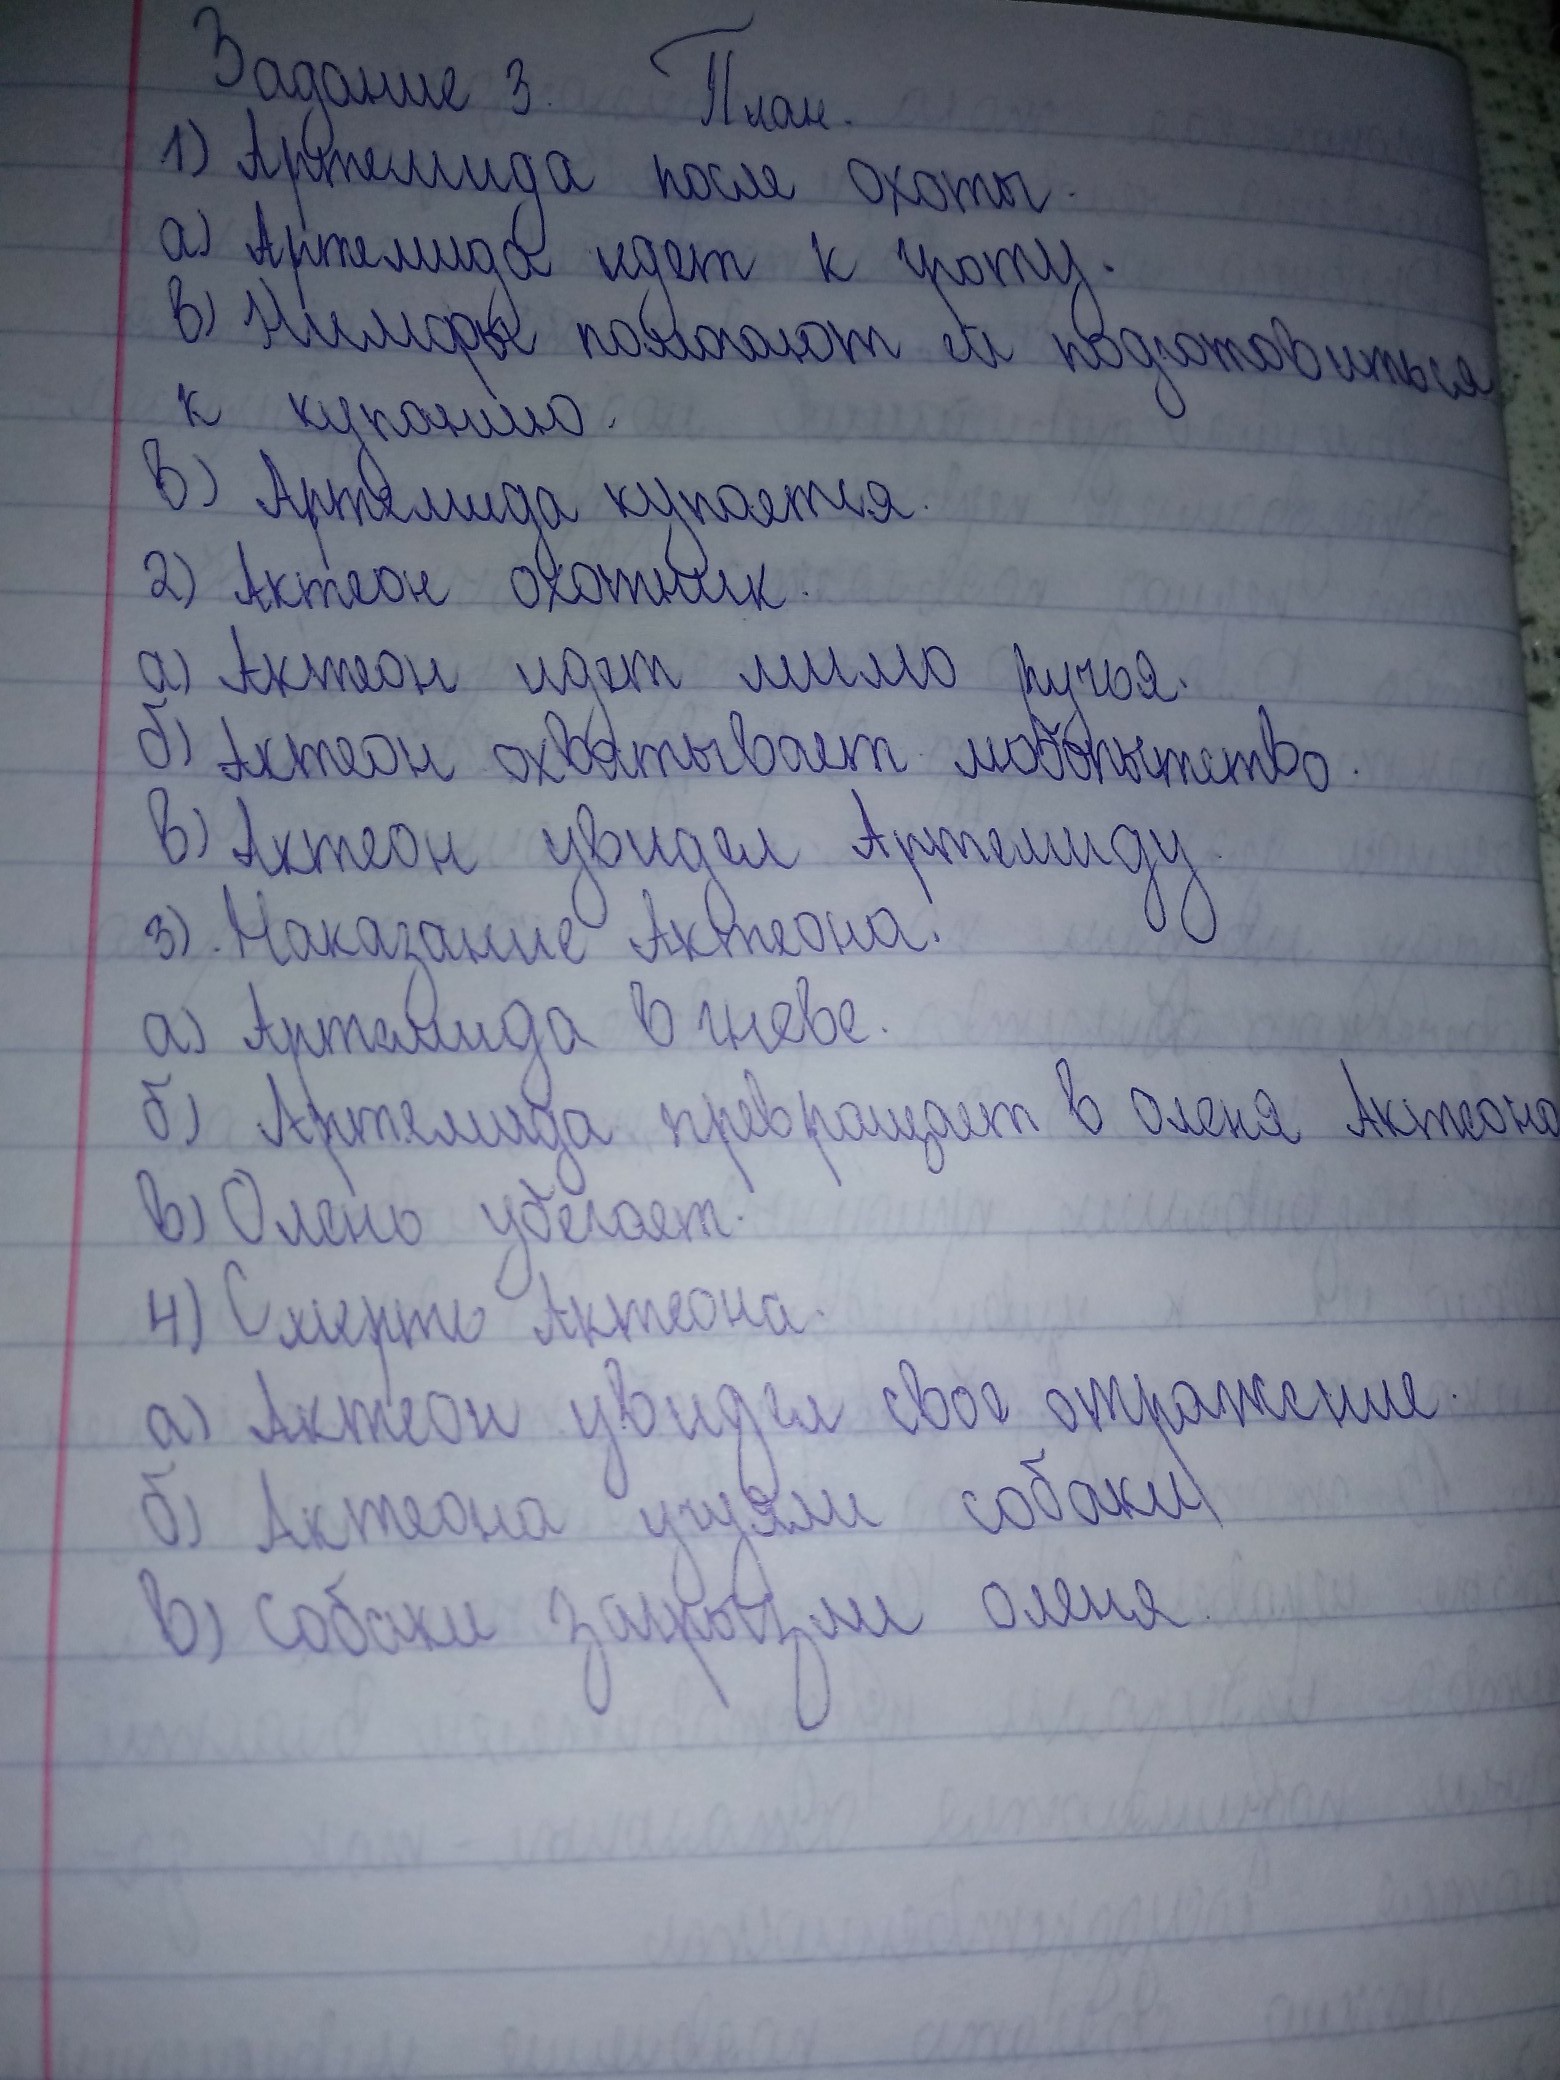 Задание 3. План.
1) Артемида после охоты.
а) Артемида идет к гроту.
в) Нимфы помогают ей подготовиться
к купанию.
в) Артемида купается.
2) Актеон охотник.
а) Актеон идет мимо ручья.
б) Актеон охватывает любопытство.
в) Актеон увидел Артемиду.
3). Наказание Актеона.
а) Артемида в гневе.
б) Артемида превращает в оленя Актеона
в) Олень убегает.
4) Смерть Актеона.
а) Актеон увидел свое отражение.
б) Актеона учуяли собаки
в) Собаки загрызли оленя.